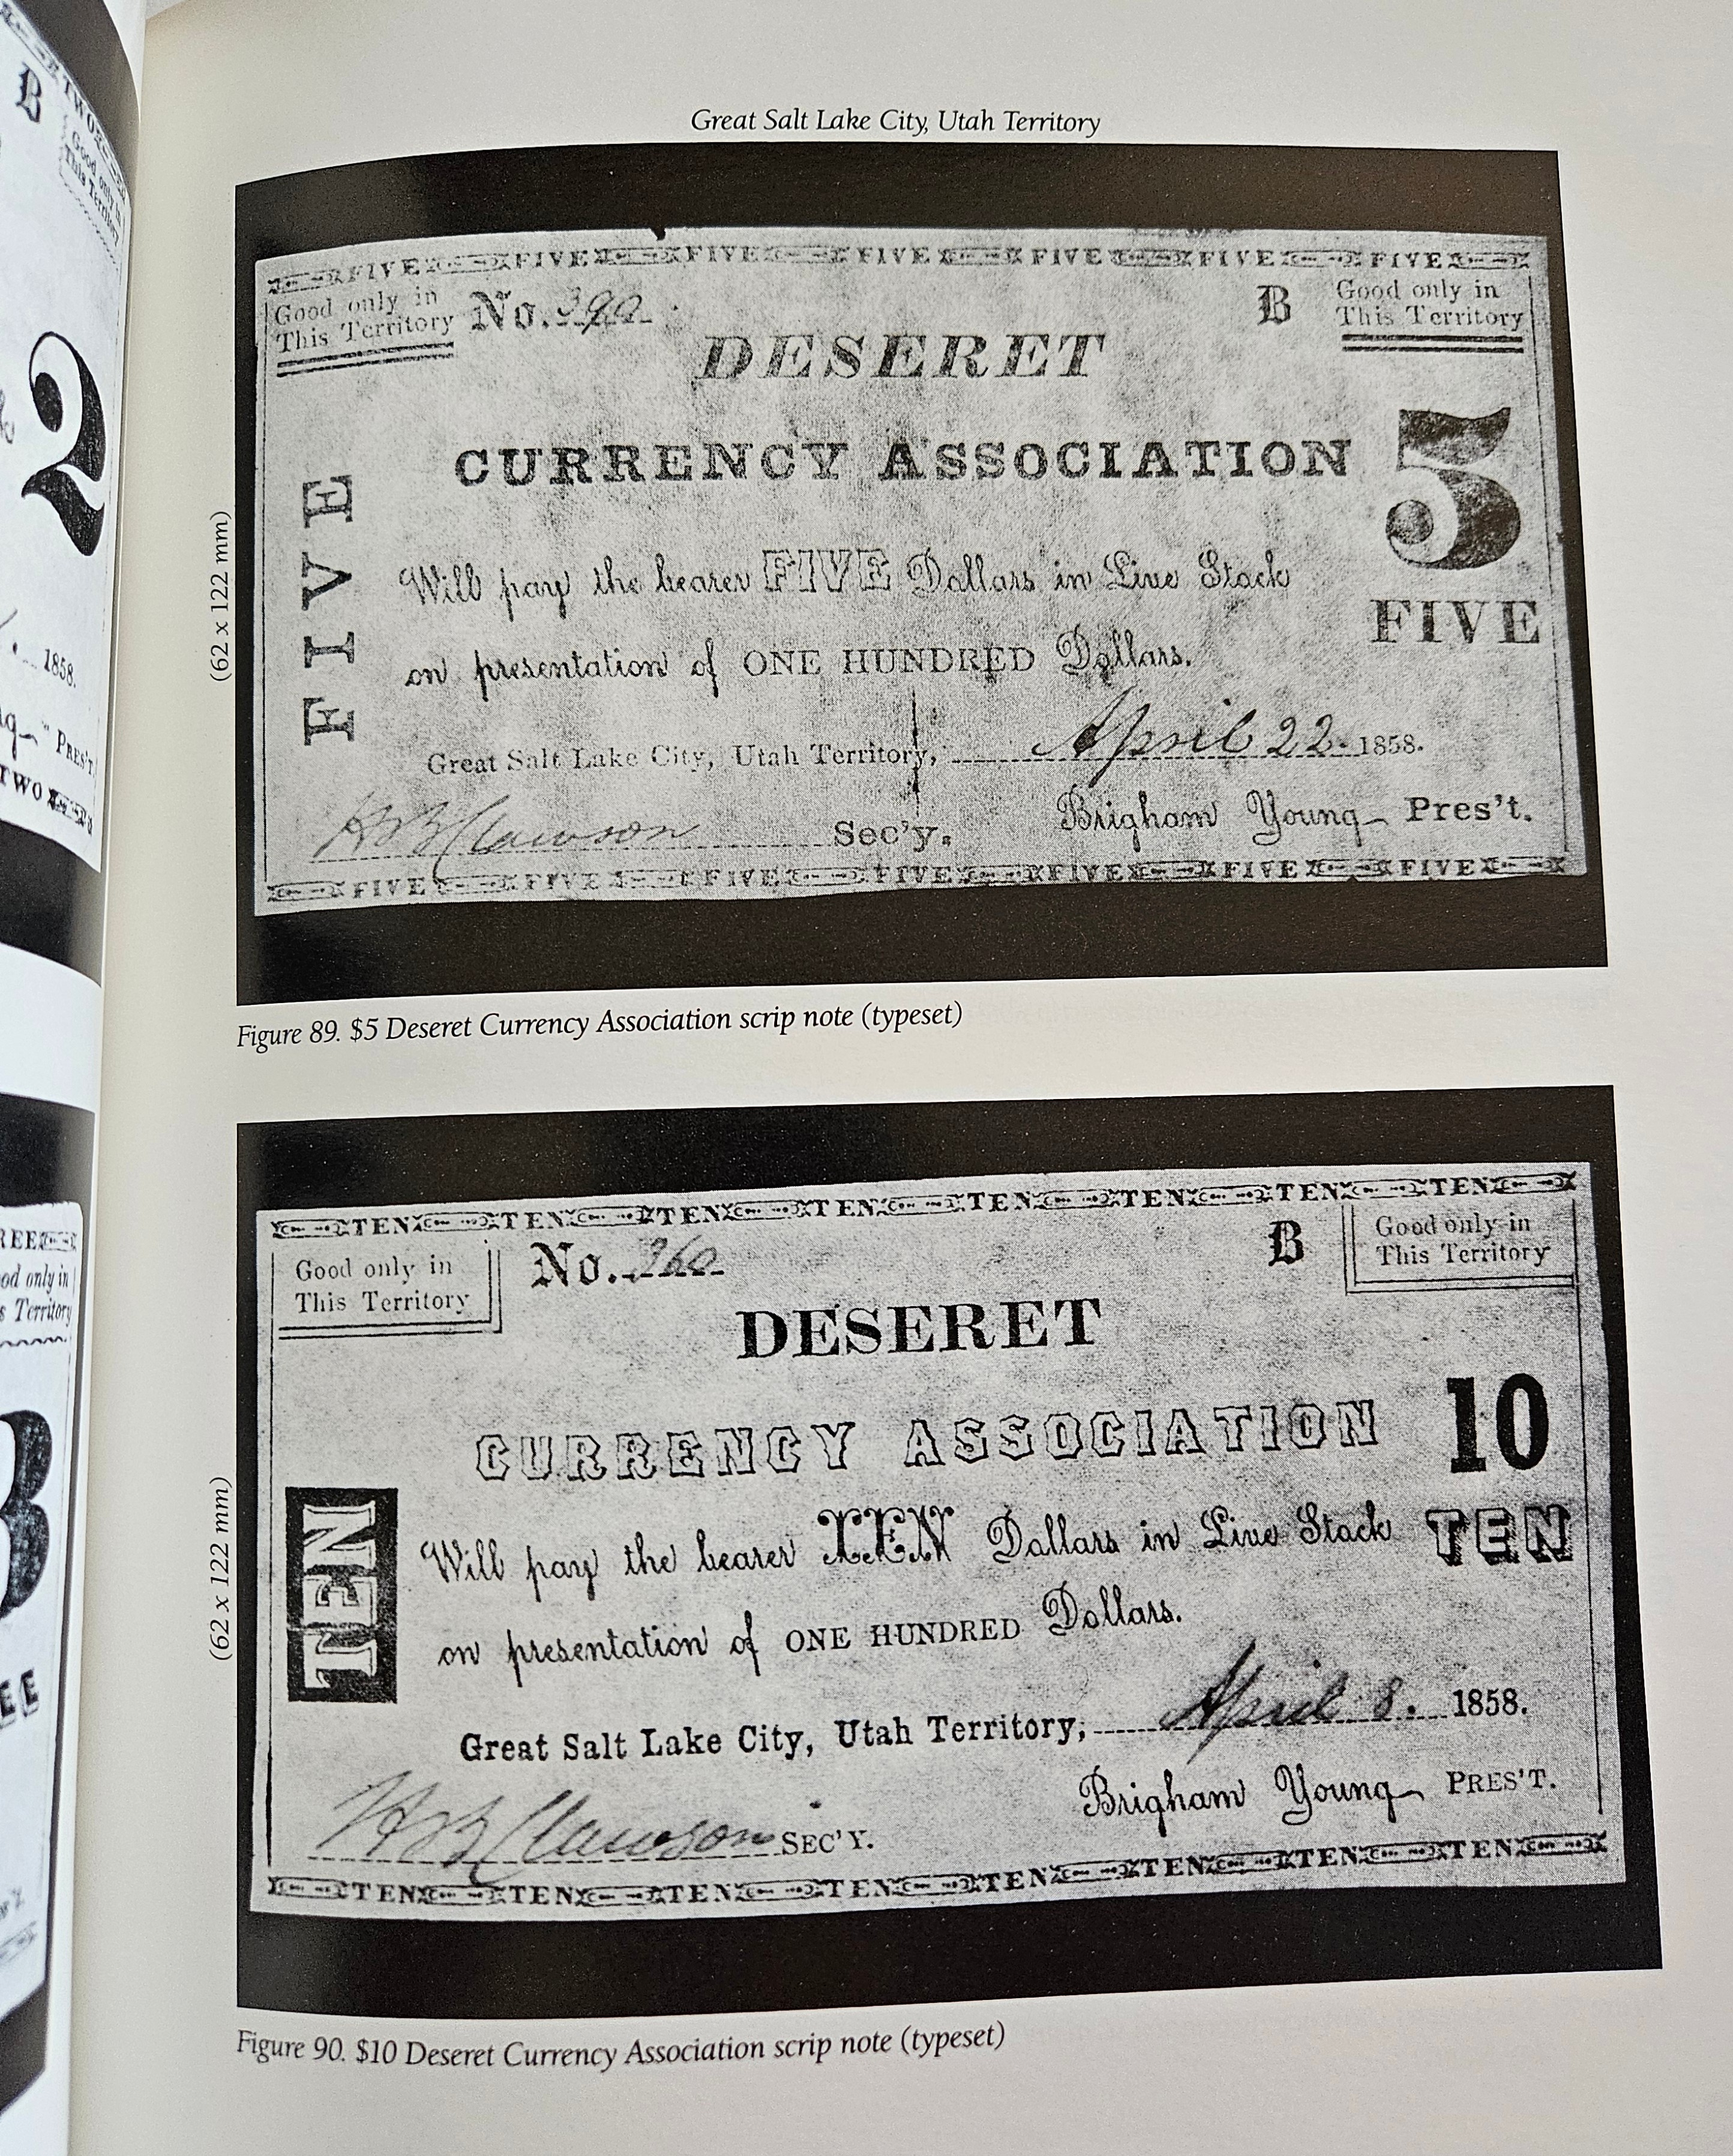 B
TWO
Good only in
This Territory
2
1858.
PRES'T.
TWO
REE
od only in
s Territory
3
EE
Great Salt Lake City, Utah Territory
(62 x 122 mm)
FIVE FIVE FIVE FIVE FIVE FIVE FIVE
Good only in
This Territory
No. 390
B
Good only in
This Territory
DESERET
CURRENCY ASSOCIATION
5
FIVE
FIVE
Will pay the bearer FIVE Dollars in Live Stock
on presentation of ONE HUNDRED Dollars.
Great Salt Lake City, Utah Territory, April 22. 1858.
H B Clawson Sec'y. Brigham Young Pres't.
FIVE FIVE FIVE FIVE FIVE FIVE FIVE
Figure 89. $5 Deseret Currency Association scrip note (typeset)
(62 x 122 mm)
TEN TEN TEN TEN TEN TEN TEN TEN
Good only in
This Territory
No. 360
B
Good only in
This Territory
DESERET
CURRENCY ASSOCIATION
10
TEN
TEN
Will pay the bearer TEN Dollars in Live Stock
on presentation of ONE HUNDRED Dollars.
Great Salt Lake City, Utah Territory, April 8. 1858.
H B Clawson SEC'Y. Brigham Young PRES'T.
TEN TEN TEN TEN TEN TEN TEN TEN
Figure 90. $10 Deseret Currency Association scrip note (typeset)